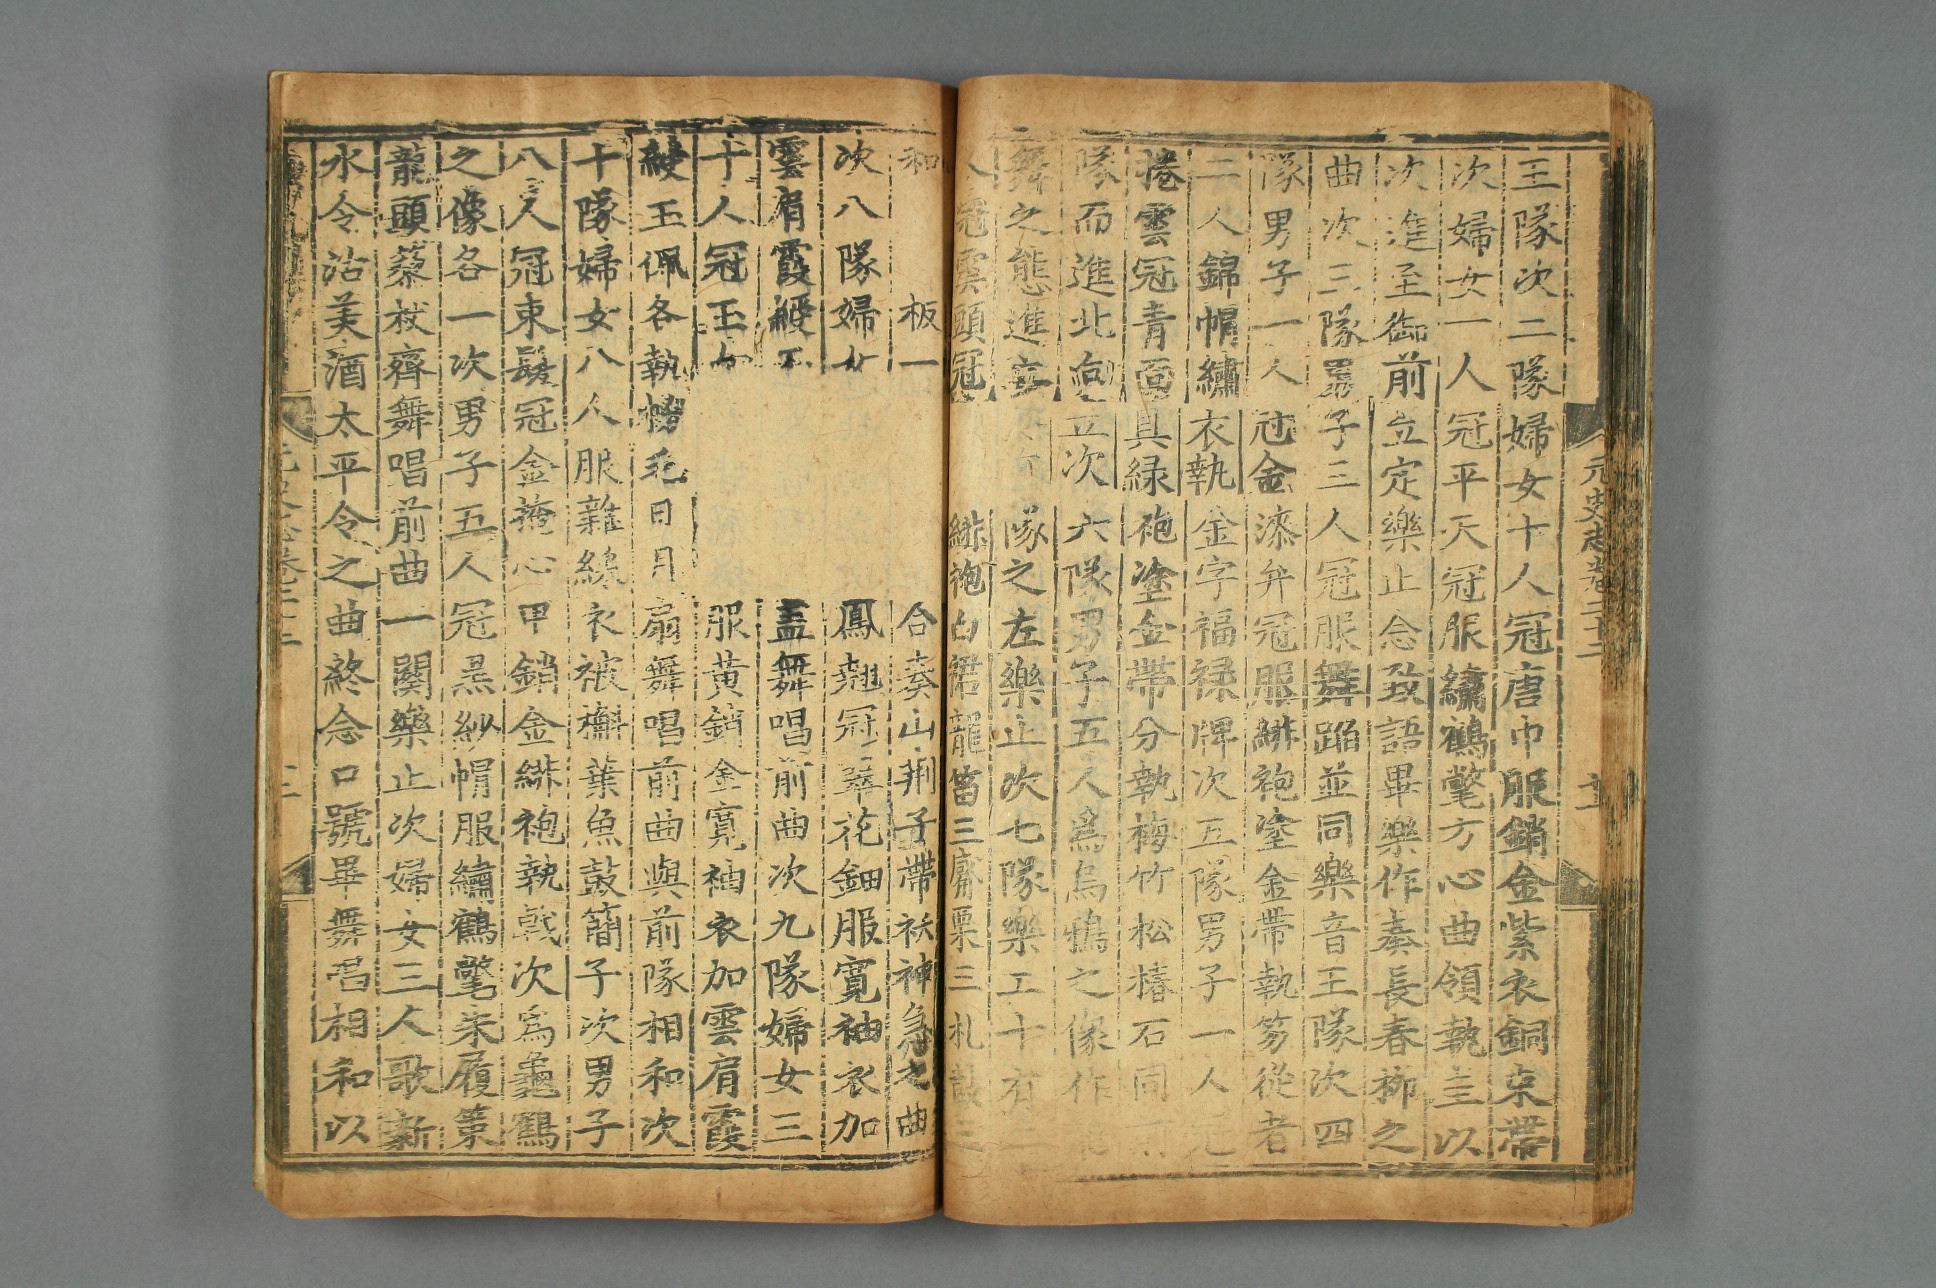 王隊次二隊婦女十人冠唐巾服銷金紫衣銅束帶
次婦女一人冠平天冠服繡鶴氅方心曲領執圭以
次進至御前立定樂止念致語畢樂作奏長春柳之
曲次三隊男子三人冠服舞蹈並同樂音王隊次四
隊男子一人冠金漆弁冠服緋袍塗金帶執笏從者
二人錦帽繡衣執金字福祿牌次五隊男子一人冠
捲雲冠青面具綠袍塗金帶分執梅竹松椿石同
隊而進北向立次六隊男子五人為烏鴉之像作
舞之態進立隊之左樂止次七隊樂工十有
人冠雲頭冠緋袍白裙龍笛三觱栗三札鼓三
和板一合奏山荊子帶袄神急之曲
次八隊婦女鳳翹冠翠花鈿服寬袖衣加
雲肩霞綬玉蓋舞唱前曲次九隊婦女三
十人冠玉女服黃銷金寬袖衣加雲肩霞
綬玉佩各執橦毛日月扇舞唱前曲與前隊相和次
十隊婦女八人服雜綵衣被槲葉魚鼓簡子次男子
八人冠束髮冠金掩心甲銷金緋袍執戟次為龜鶴
之像各一次男子五人冠黑紗帽服繡鶴氅朱履策
龍頭藜杖齊舞唱前曲一闋樂止次婦女三人歌新
水令沽美酒太平令之曲終念口號畢舞唱相和以
元史志卷二十二